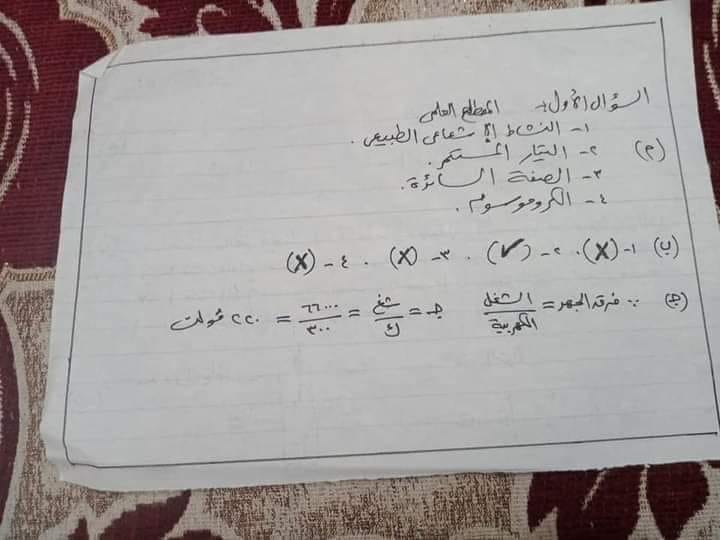 السؤال الأول:- المصطلح العلمى
١- النشاط الإشعاعى الطبيعى.
(م) ٢- التيار المستمر.
٣- الصفة السائدة.
٤- الكروموسوم.
(ب) ١- (X) . ٢- (✓) . ٣- (X) . ٤- (X)
(ج) ∵ فرق الجهد = الشغل / الكهربية جـ = شغ / ك = ٦٦٠٠٠ / ٣٠٠ = ٢٢٠ فولت